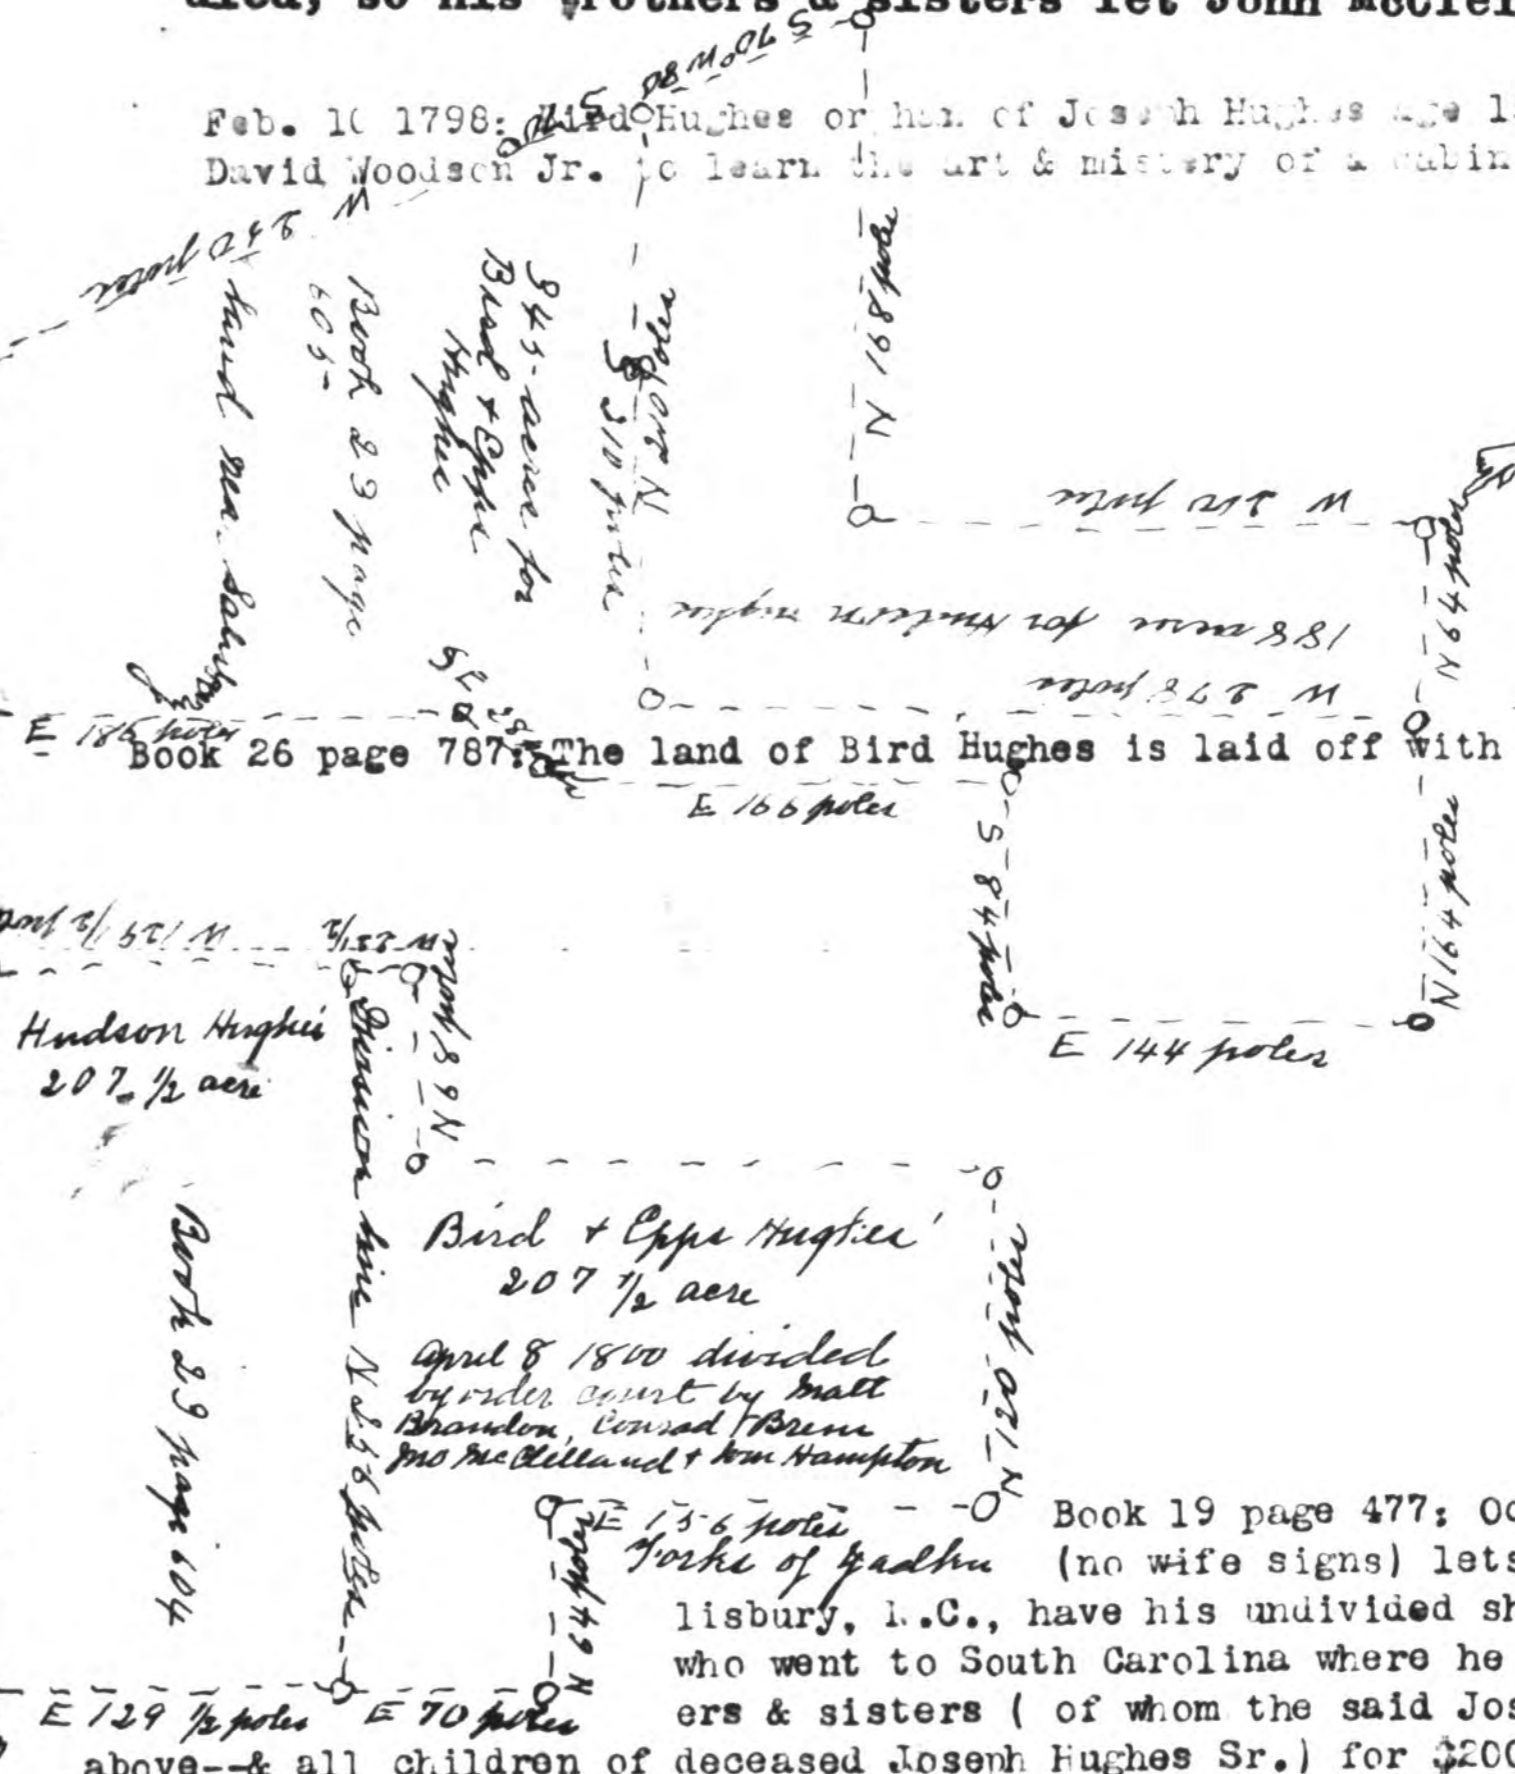 died, so his brothers & sisters let John McClel
S 70° W 80
Feb. 10 1798: Bird Hughes orphan of Joseph Hughes age 1
David Woodson Jr. to learn the art & mistery of a cabin
W 240 poles
Land nea. Salis
Book 23 page
605
345 acres for
Bird & Epps
Hughes
S 310 poles
N 210 poles
N 198 poles
W 210 poles
N 64 poles
188 acres for Hudson Hughes
W 278 poles
E 186 poles
S 25
Book 26 page 787: The land of Bird Hughes is laid off with
E 166 poles
S 84 poles
N 164 poles
E 144 poles
W 129 1/2 pol
W 22 1/2
N 68 poles
Hudson Hughes
207 1/2 acre
Division line N 256 poles
Book 23 page 604
Bird & Epps Hughes
207 1/2 acre
April 8 1800 divided
by order court by Matt
Brandon, Conrad Brem
Jno McClelland & Wm Hampton
N 120 poles
E 156 poles
Forks of Yadkin
N 64 poles
E 129 1/2 poles
E 70 poles
Book 19 page 477: Oc
(no wife signs) lets
lisbury, N.C., have his undivided sh
who went to South Carolina where he
ers & sisters ( of whom the said Jos
above--& all children of deceased Joseph Hughes Sr.) for $200